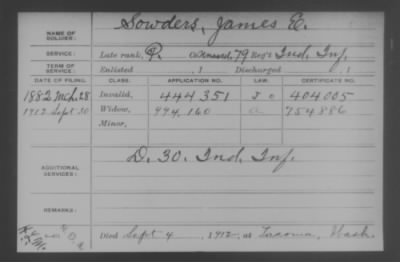 NAME OF SOLDIER: Sowders, James E.
SERVICE: Late rank, P. Co. 79 Reg't Ind. Inf.
TERM OF SERVICE: Enlisted , 1 Discharged , 1
DATE OF FILING. CLASS. APPLICATION NO. LAW. CERTIFICATE NO.
1882 Mch. 28 Invalid, 444351 404005
1912 Sept 30 Widow, 994,160 a 754886
Minor,
ADDITIONAL SERVICES: D. 30. Ind. Inf.
REMARKS:
Died Sept 4 , 1912, at Tacoma, Wash.